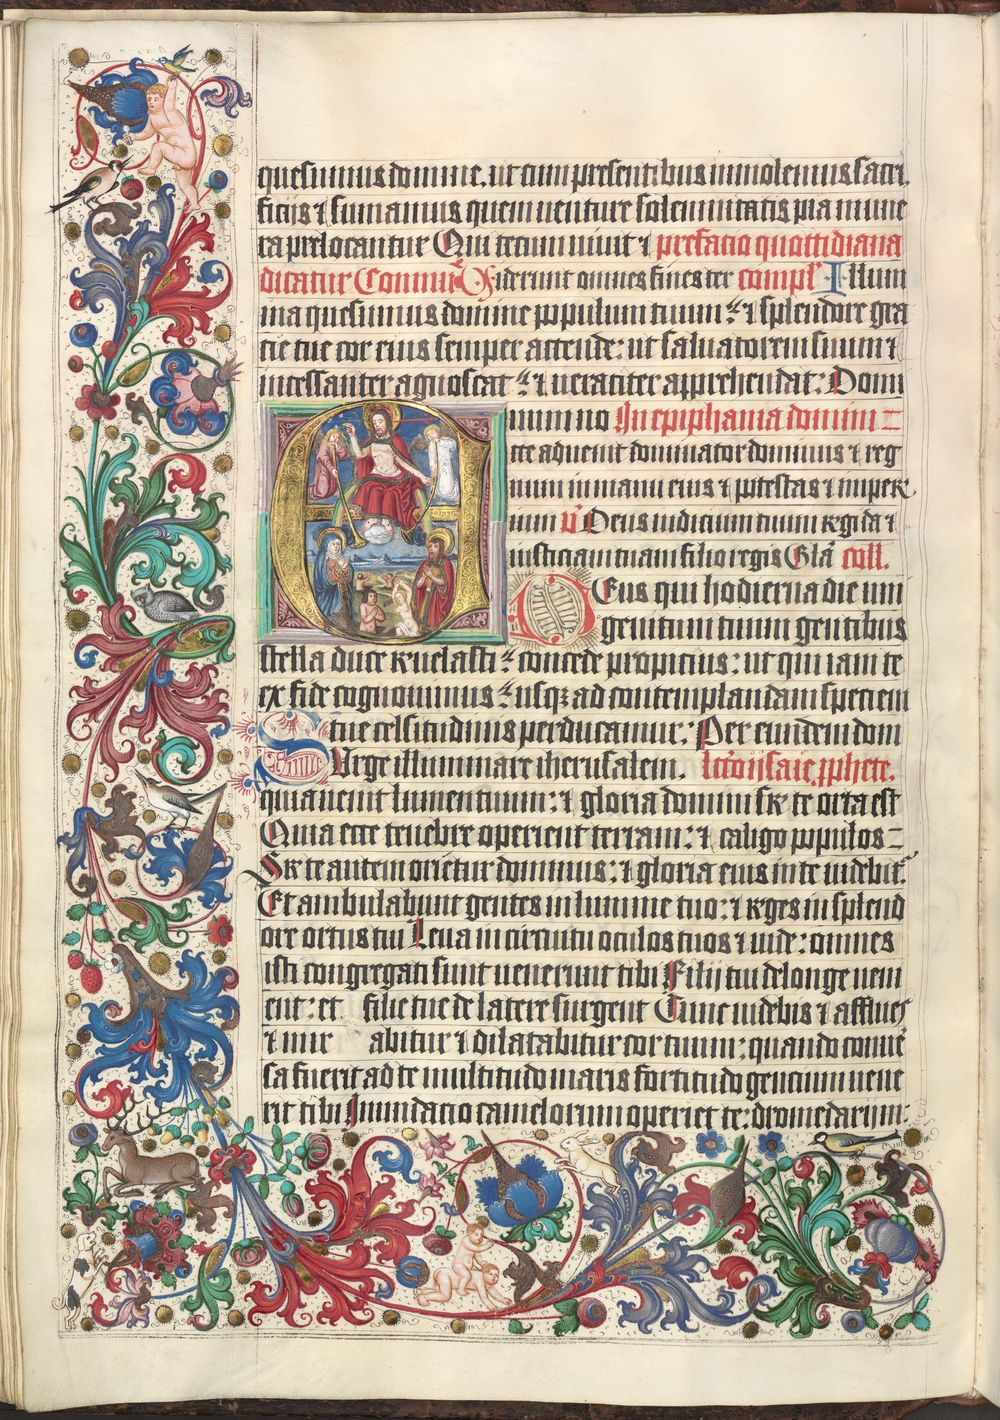 quesumus domine. ut cum presentibus immolemus sacri
ficijs ⁊ sumamus quem uenture solemnitatis pia mune
ra prelocuntur Qui tecum uiuit ⁊ prefacio quottidiana
dicatur Commũ Uiderunt omnes fines ter compl̃ Illum
ina quesumus domine populum tuum: ⁊ splendore gra
tie tue cor eius semper accende: ut saluatorem suum ⁊
incessanter agnoscat: ⁊ ueraciter apprehendat: Domi
num no In epiphania domini
cce aduenit dominator dominus ⁊ reg
num in manu eius ⁊ potestas ⁊ imper
ium v̾ Deus iudicium tuum regi da ⁊
iusticiam tuam filio regis Glã coll.
Deus qui hodierna die uni
genitum tuum gentibus
stella duce reuelasti: concede propicius: ut qui iam te
ex fide cognouimus: usqꝫ ad contemplandam speciem
tue celsitudinis perducamur: Per eundem dom
Surge illuminare iherusalem. lcõ ysaie pphete.
quia uenit lumen tuum: ⁊ gloria domini sr̃ te orta est
Quia ecce tenebre operient terram: ⁊ caligo populos
Sr̃ te autem orietur dominus: ⁊ gloria eius in te uidebit̃
Et ambulabunt gentes in lumine tuo: ⁊ reges in splend
ore ortus tui Leua in circuitu oculos tuos ⁊ uide: omnes
isti congregati sunt uenerunt tibi Filij tui de longe ueni
ent: et filie tue de latere surgent Tunc uidebis ⁊ afflues
⁊ mir abitur ⁊ dilatabitur cor tuum: quando conue
sa fuerit ad te multitudo maris fortitudo gencium uene
rit tibi Inundacio camelorum operiet te: dromedarium